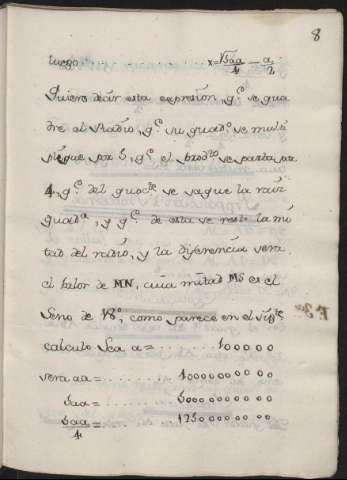 8
luego . . . . . . x = √5aa/4 − a/2
Quiere decir esta expresión, q.e se qua
dre el Radio, q.e su quad.o se multi
plique por 5, q.e el prod.to se parta por
4, q.e del quoc.te se saque la raiz
quad.a, y q.e de esta se reste la mi
tad del radio, y la diferencia sera
el balor de MN, cuia mitad MS es el
Seno de 18°, como parece en el sig.te
calculo Sea a = . . . . . . . 10000
vera aa = . . . . . . . 100000000
5aa = . . . . . . . . 500000000
5aa/4 = . . . . . . . 125000000